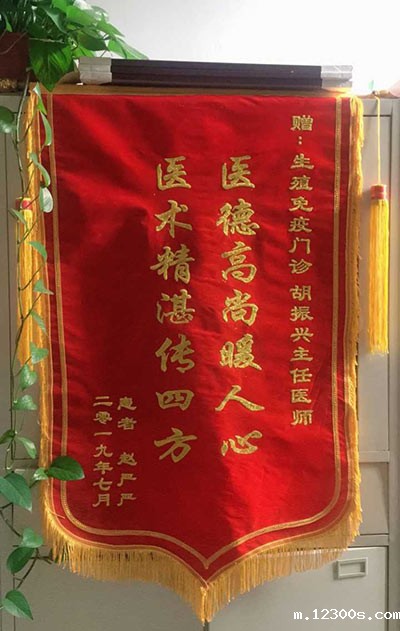 赠：生殖免疫门诊 胡振兴主任医师
医德高尚暖人心
医术精湛传四方
患者 赵严严
二零一九年七月
m.12300s.com